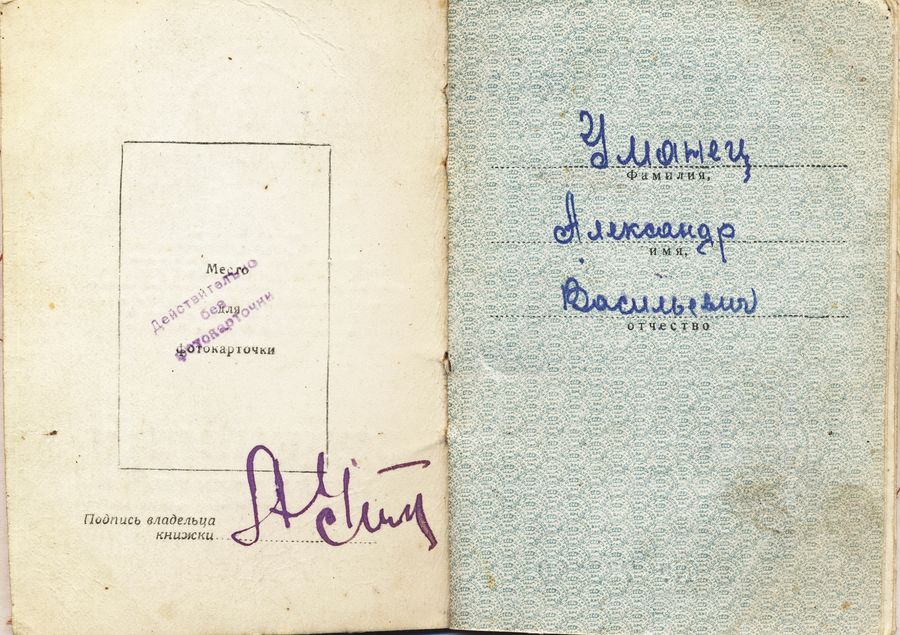 Место
для
фотокарточки
Действительно
без
фотокарточки
Подпись владельца
книжки
Уманец
фамилия,
Александр
имя,
Васильевич
отчество